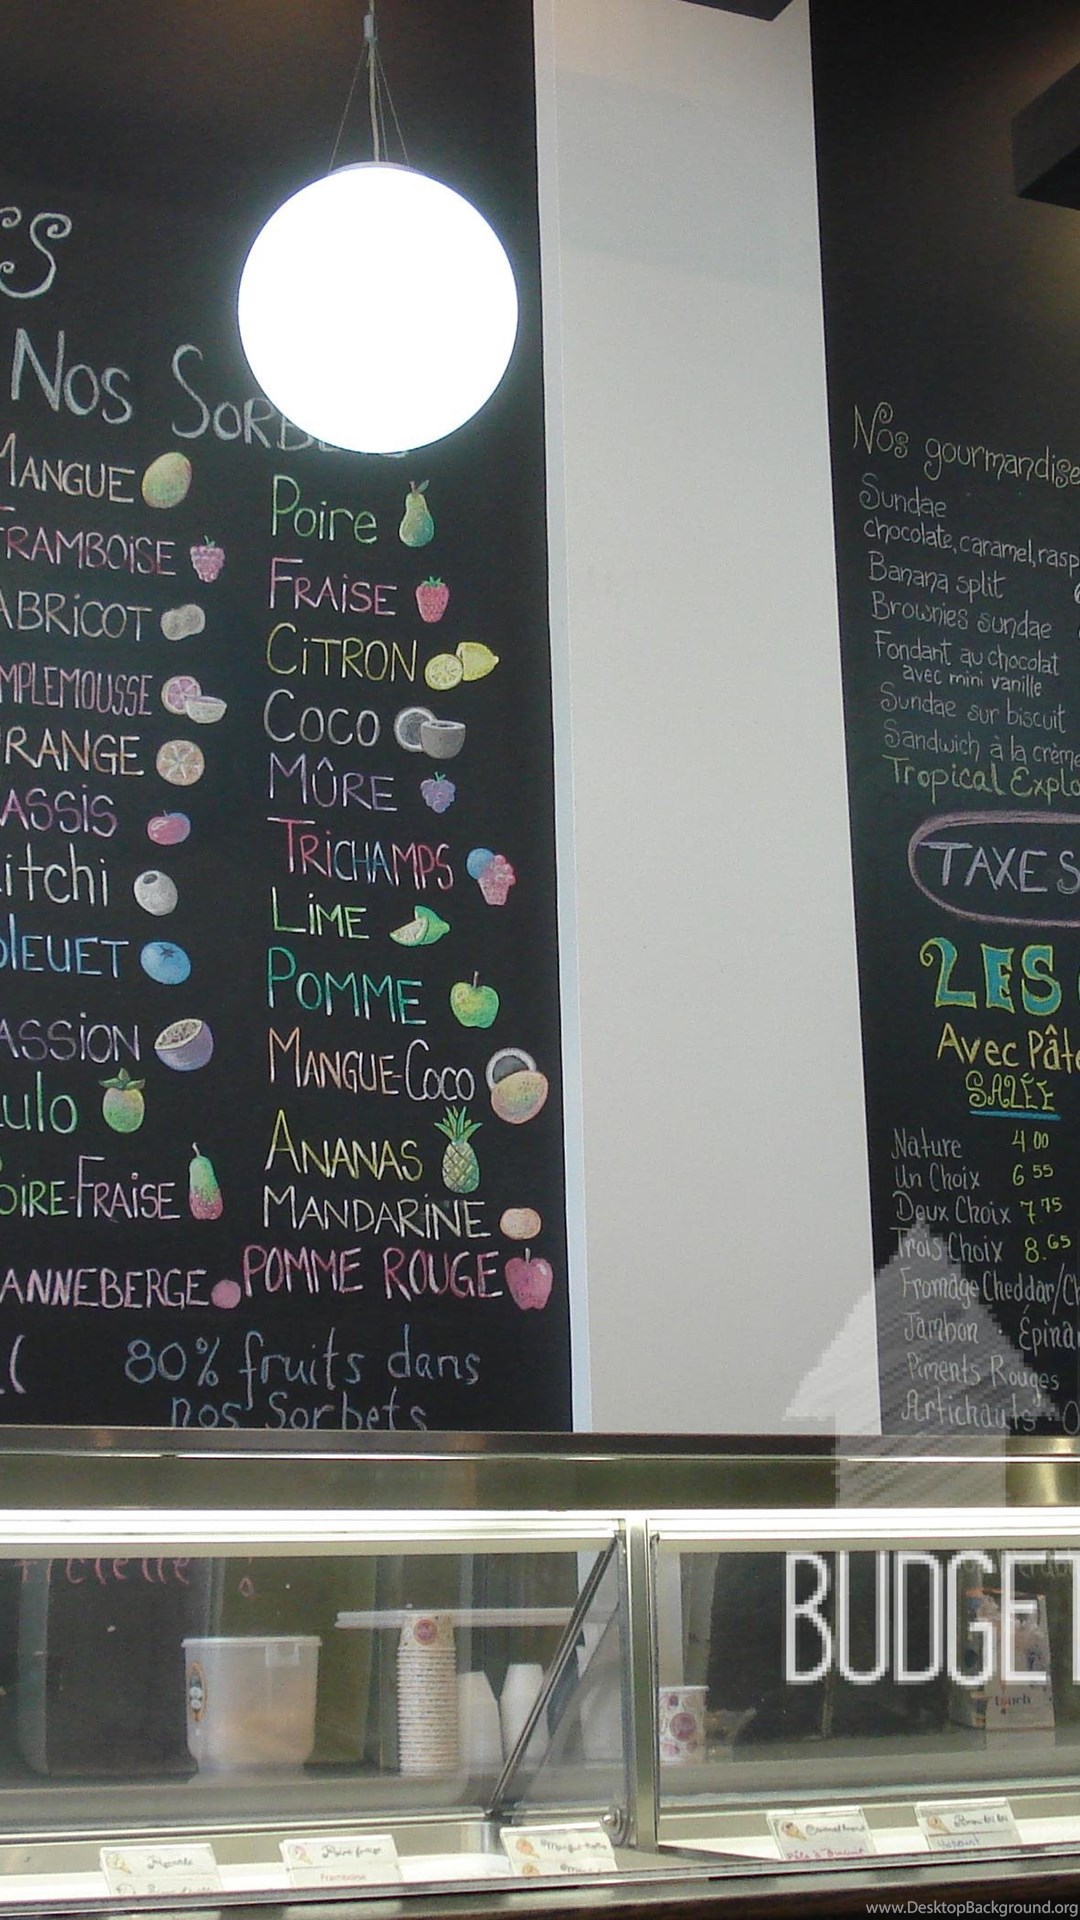 Nos
MANGUE
FRAMBOISE
ABRICOT
MPLEMOUSSE
RANGE
ASSIS
itchi
LEUET
ASSION
ulo
OIRE-FRAISE
ANNEBERGE
Poire
FRAISE
CiTRON
COCO
MÛRE
TRiCHAMPS
LiME
POMME
MANGUE-COCO
ANANAS
MANDARiNE
POMME ROUGE
80% fruits dans
nos Sorbets
Nos gourmandise
Sundae
chocolate, caramel, rasp
Banana split
Brownies sundae
Fondant au chocolat
avec mini vanille
Sundae sur biscuit
Sandwich à la crème
Tropical Explo
TAXES
LES
Avec Pâte
SALÉE
Nature 4.00
Un Choix 6 55
Deux Choix 7.75
Trois Choix 8.65
Fromage Cheddar/Ch
Jambon · Épina
Piments Rouges
Artichauts · O
BUDGET
www.DesktopBackground.org